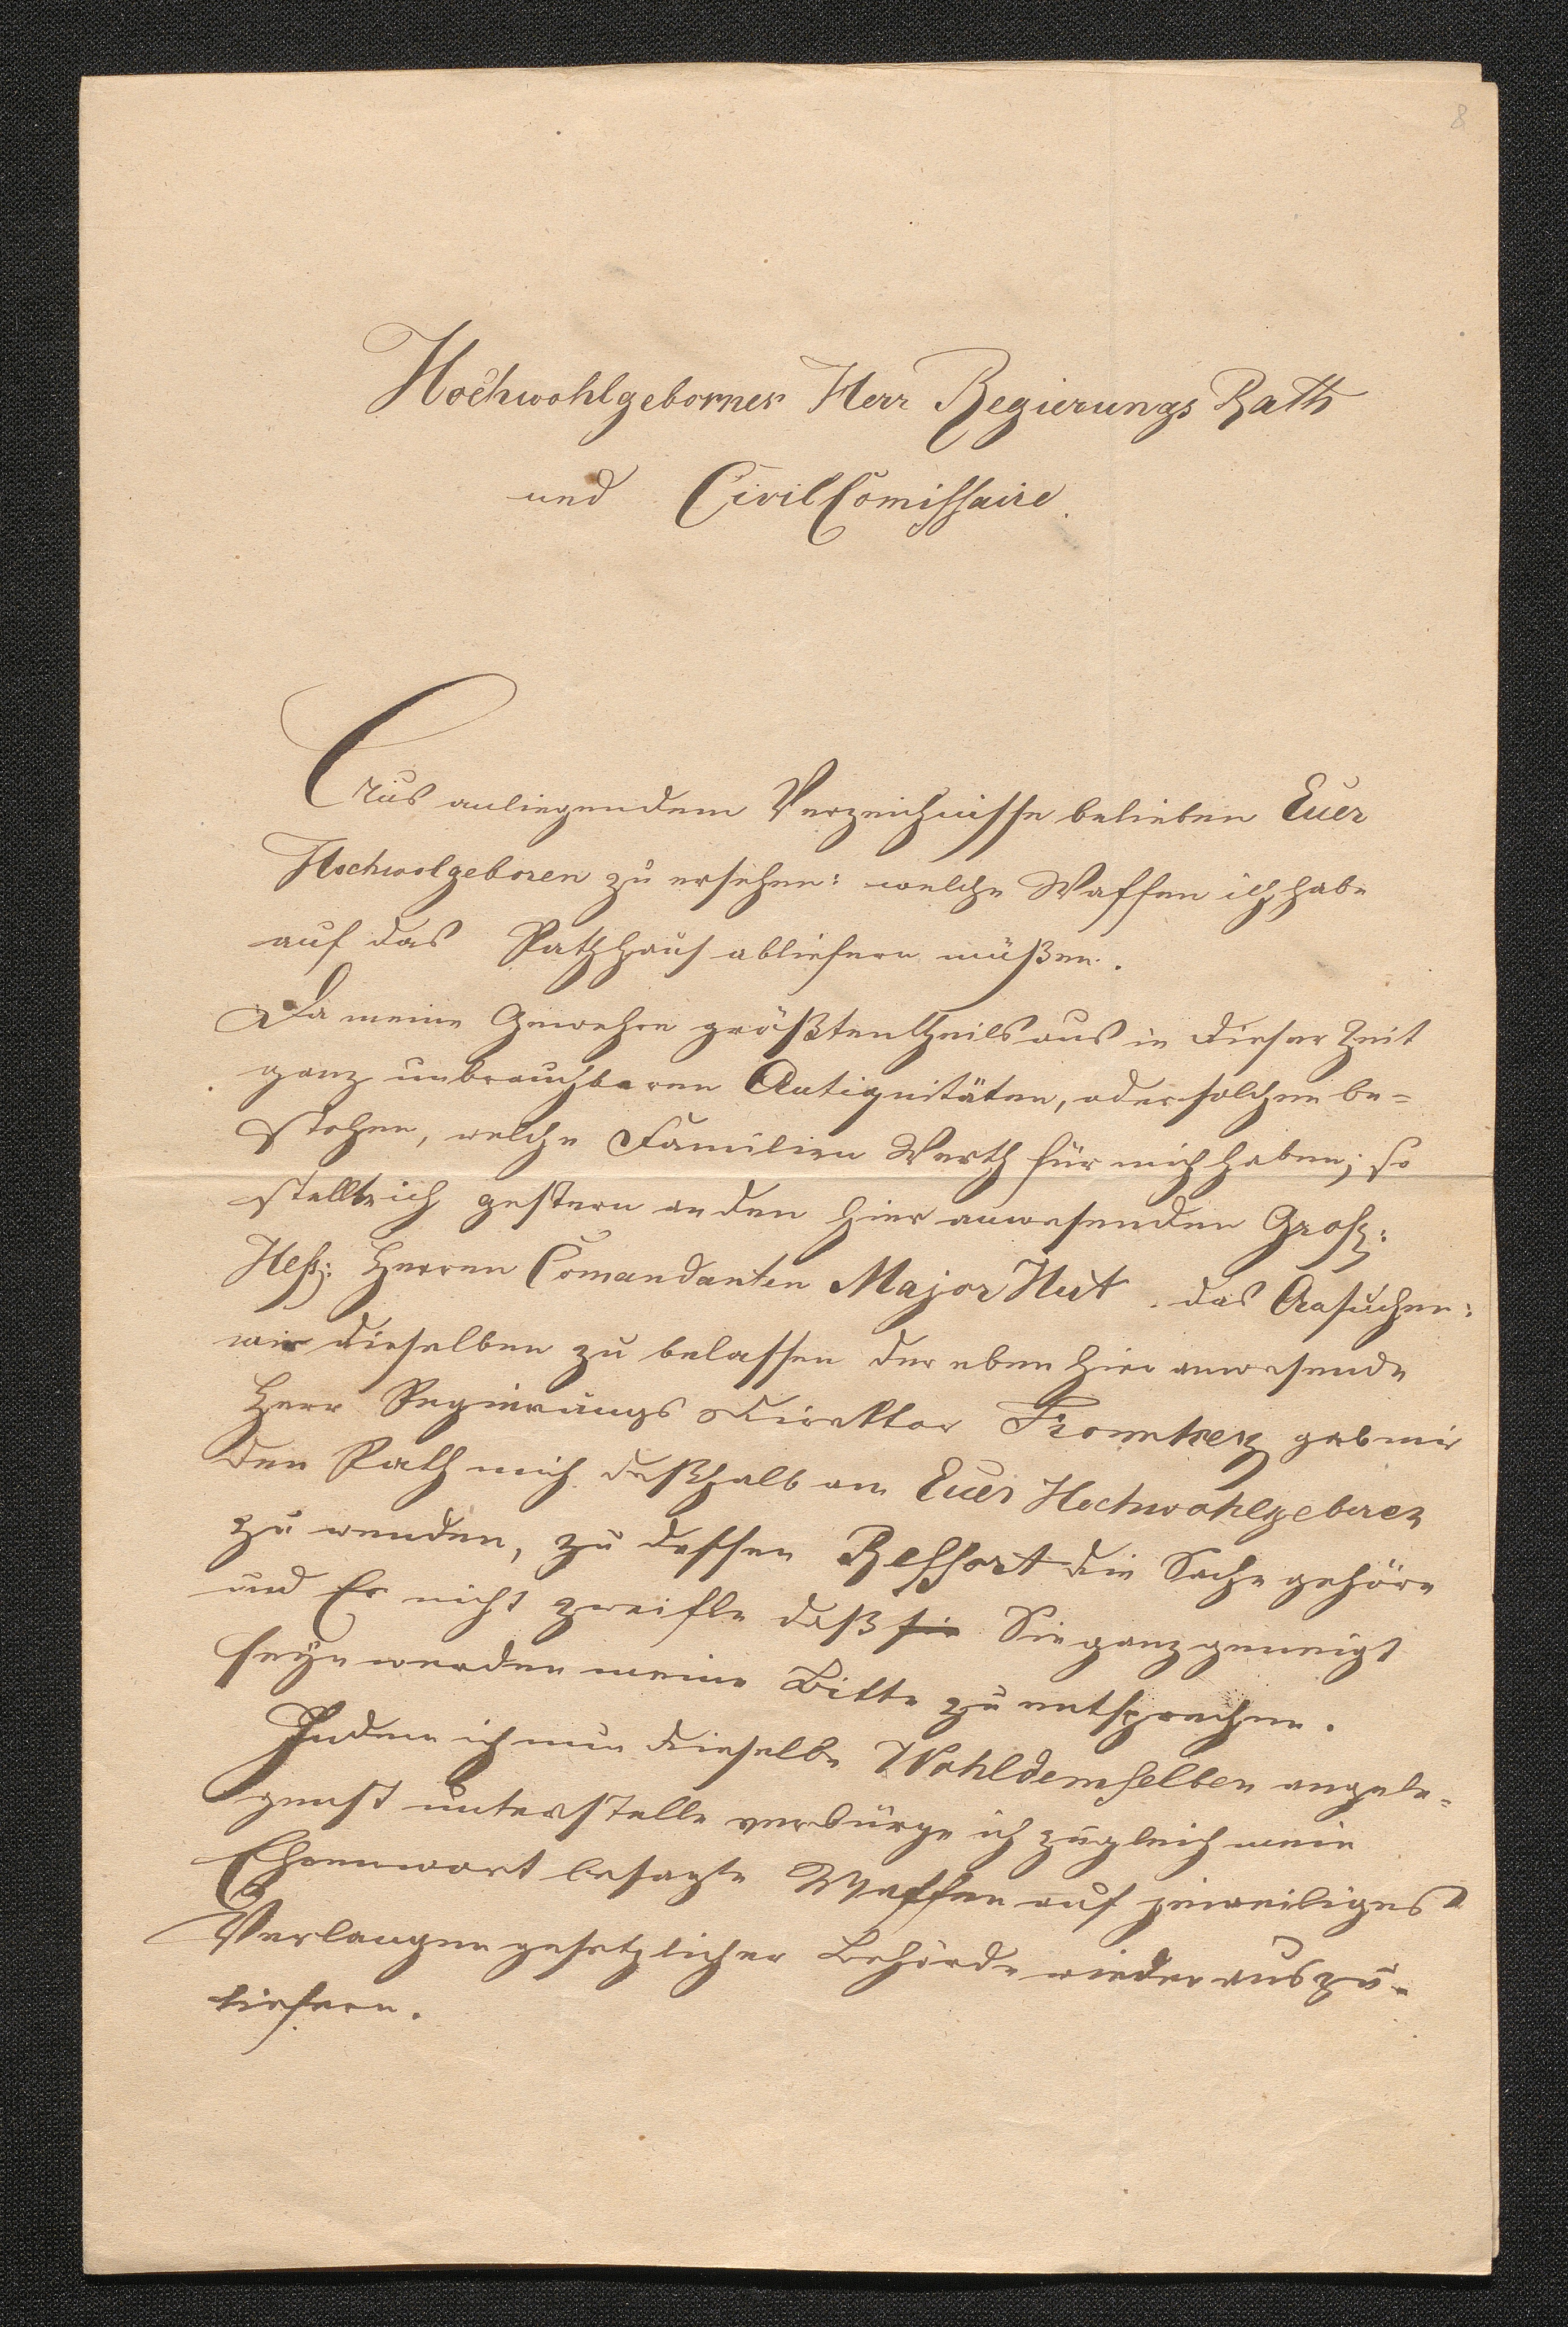 8
Hochwohlgeborner Herr Regierungs Rath
und CivilComissaire.
Aus anliegendem Verzeichnisse belieben Euer
Hochwolgeboren zu ersehen: welche Waffen ich habe
auf das Rathhaus abliefern müßen.
Da meine Gewehre größtentheils aus in dieser Zeit
ganz unbrauchbaren Antiquitäten, oder solchen be-
stehen, welche Familien Werth für mich haben; so
stellte ich gestern an den hier anwesenden Großh:
Heß: Herren Comandanten Major Hut das Ansuchen:
mir dieselben zu belassen der eben hier anwesende
Herr Regierungs Direktor Fromherz gab mir
den Rath mich deßhalb an Euer Hochwohlgeboren
zu wenden, zu dessen Ressort die Sache gehöre
und Er nicht zweifle daß sie Sie ganz geneigt
seyn werden meine Bitte zu entsprechen.
Indem ich nun dieselbe Wohldemselben angele-
genst unterstelle verbürge ich zugleich mein
Ehrenwort besagte Waffen auf jeweiliges
Verlangen gesetzlicher Behörde wieder auszu-
liefern.